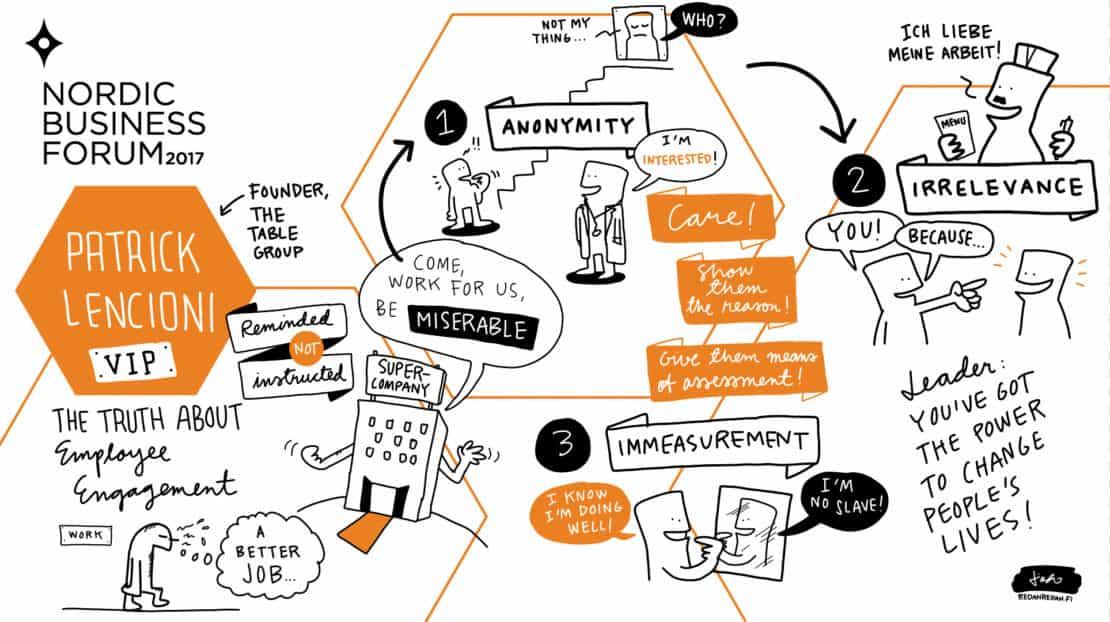 NORDIC
BUSINESS
FORUM2017
PATRICK
LENCIONI
VIP
FOUNDER,
THE
TABLE
GROUP
Reminded
NOT
instructed
THE TRUTH ABOUT
Employee
Engagement
WORK
A
BETTER
JOB...
COME,
WORK FOR US,
BE MISERABLE
SUPER-
COMPANY
1
ANONYMITY
NOT MY
THING...
WHO?
I'M
INTERESTED!
Care!
Show
them
the reason!
Give them means
of assessment!
2
IRRELEVANCE
ICH LIEBE
MEINE ARBEIT!
MENU
YOU!
BECAUSE...
3
IMMEASUREMENT
I KNOW
I'M DOING
WELL!
I'M
NO SLAVE!
Leader:
YOU'VE GOT
THE POWER
TO CHANGE
PEOPLE'S
LIVES!